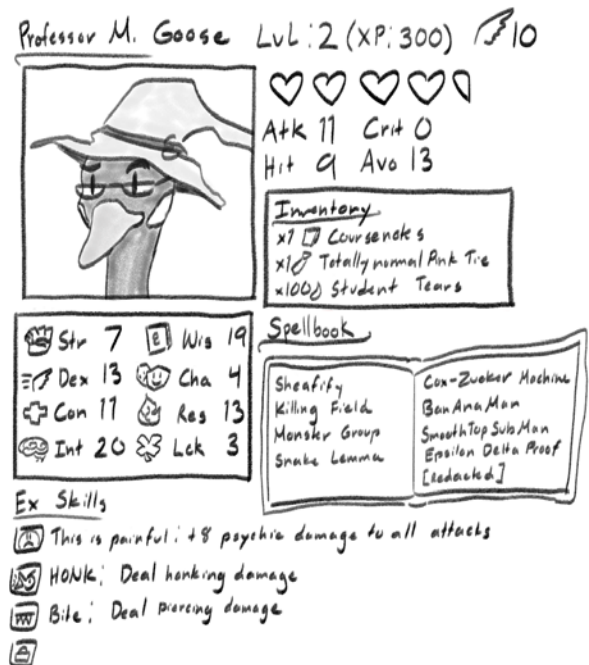 Professor M. Goose LvL: 2 (XP: 300) 10
Atk 11 Crit 0
Hit 9 Avo 13
Inventory
x1 Coursenotes
x1 Totally normal Pink Tie
x100 Student Tears
Str 7 Wis 19
Dex 13 Cha 4
Con 11 Res 13
Int 20 Lck 3
Spellbook
Sheafify
Killing Field
Monster Group
Snake Lemma
Cox-Zucker Machine
BanAnaMan
SmoothTopSubMan
Epsilon Delta Proof
[Redacted]
Ex Skills
This is painful: +8 psychic damage to all attacks
HONK: Deal honking damage
Bite: Deal piercing damage